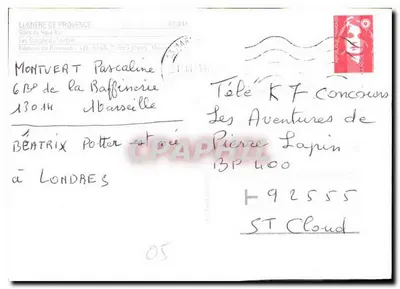 LUMIERE DE PROVENCE
MONTVERT Pascaline
6 BD de la Raffinerie
13014 Marseille
BÉATRIX Potter est née
à LONDRES
05
Télé K7 Concours
Les Aventures de
Pierre Lapin
BP 400
92555
ST Cloud